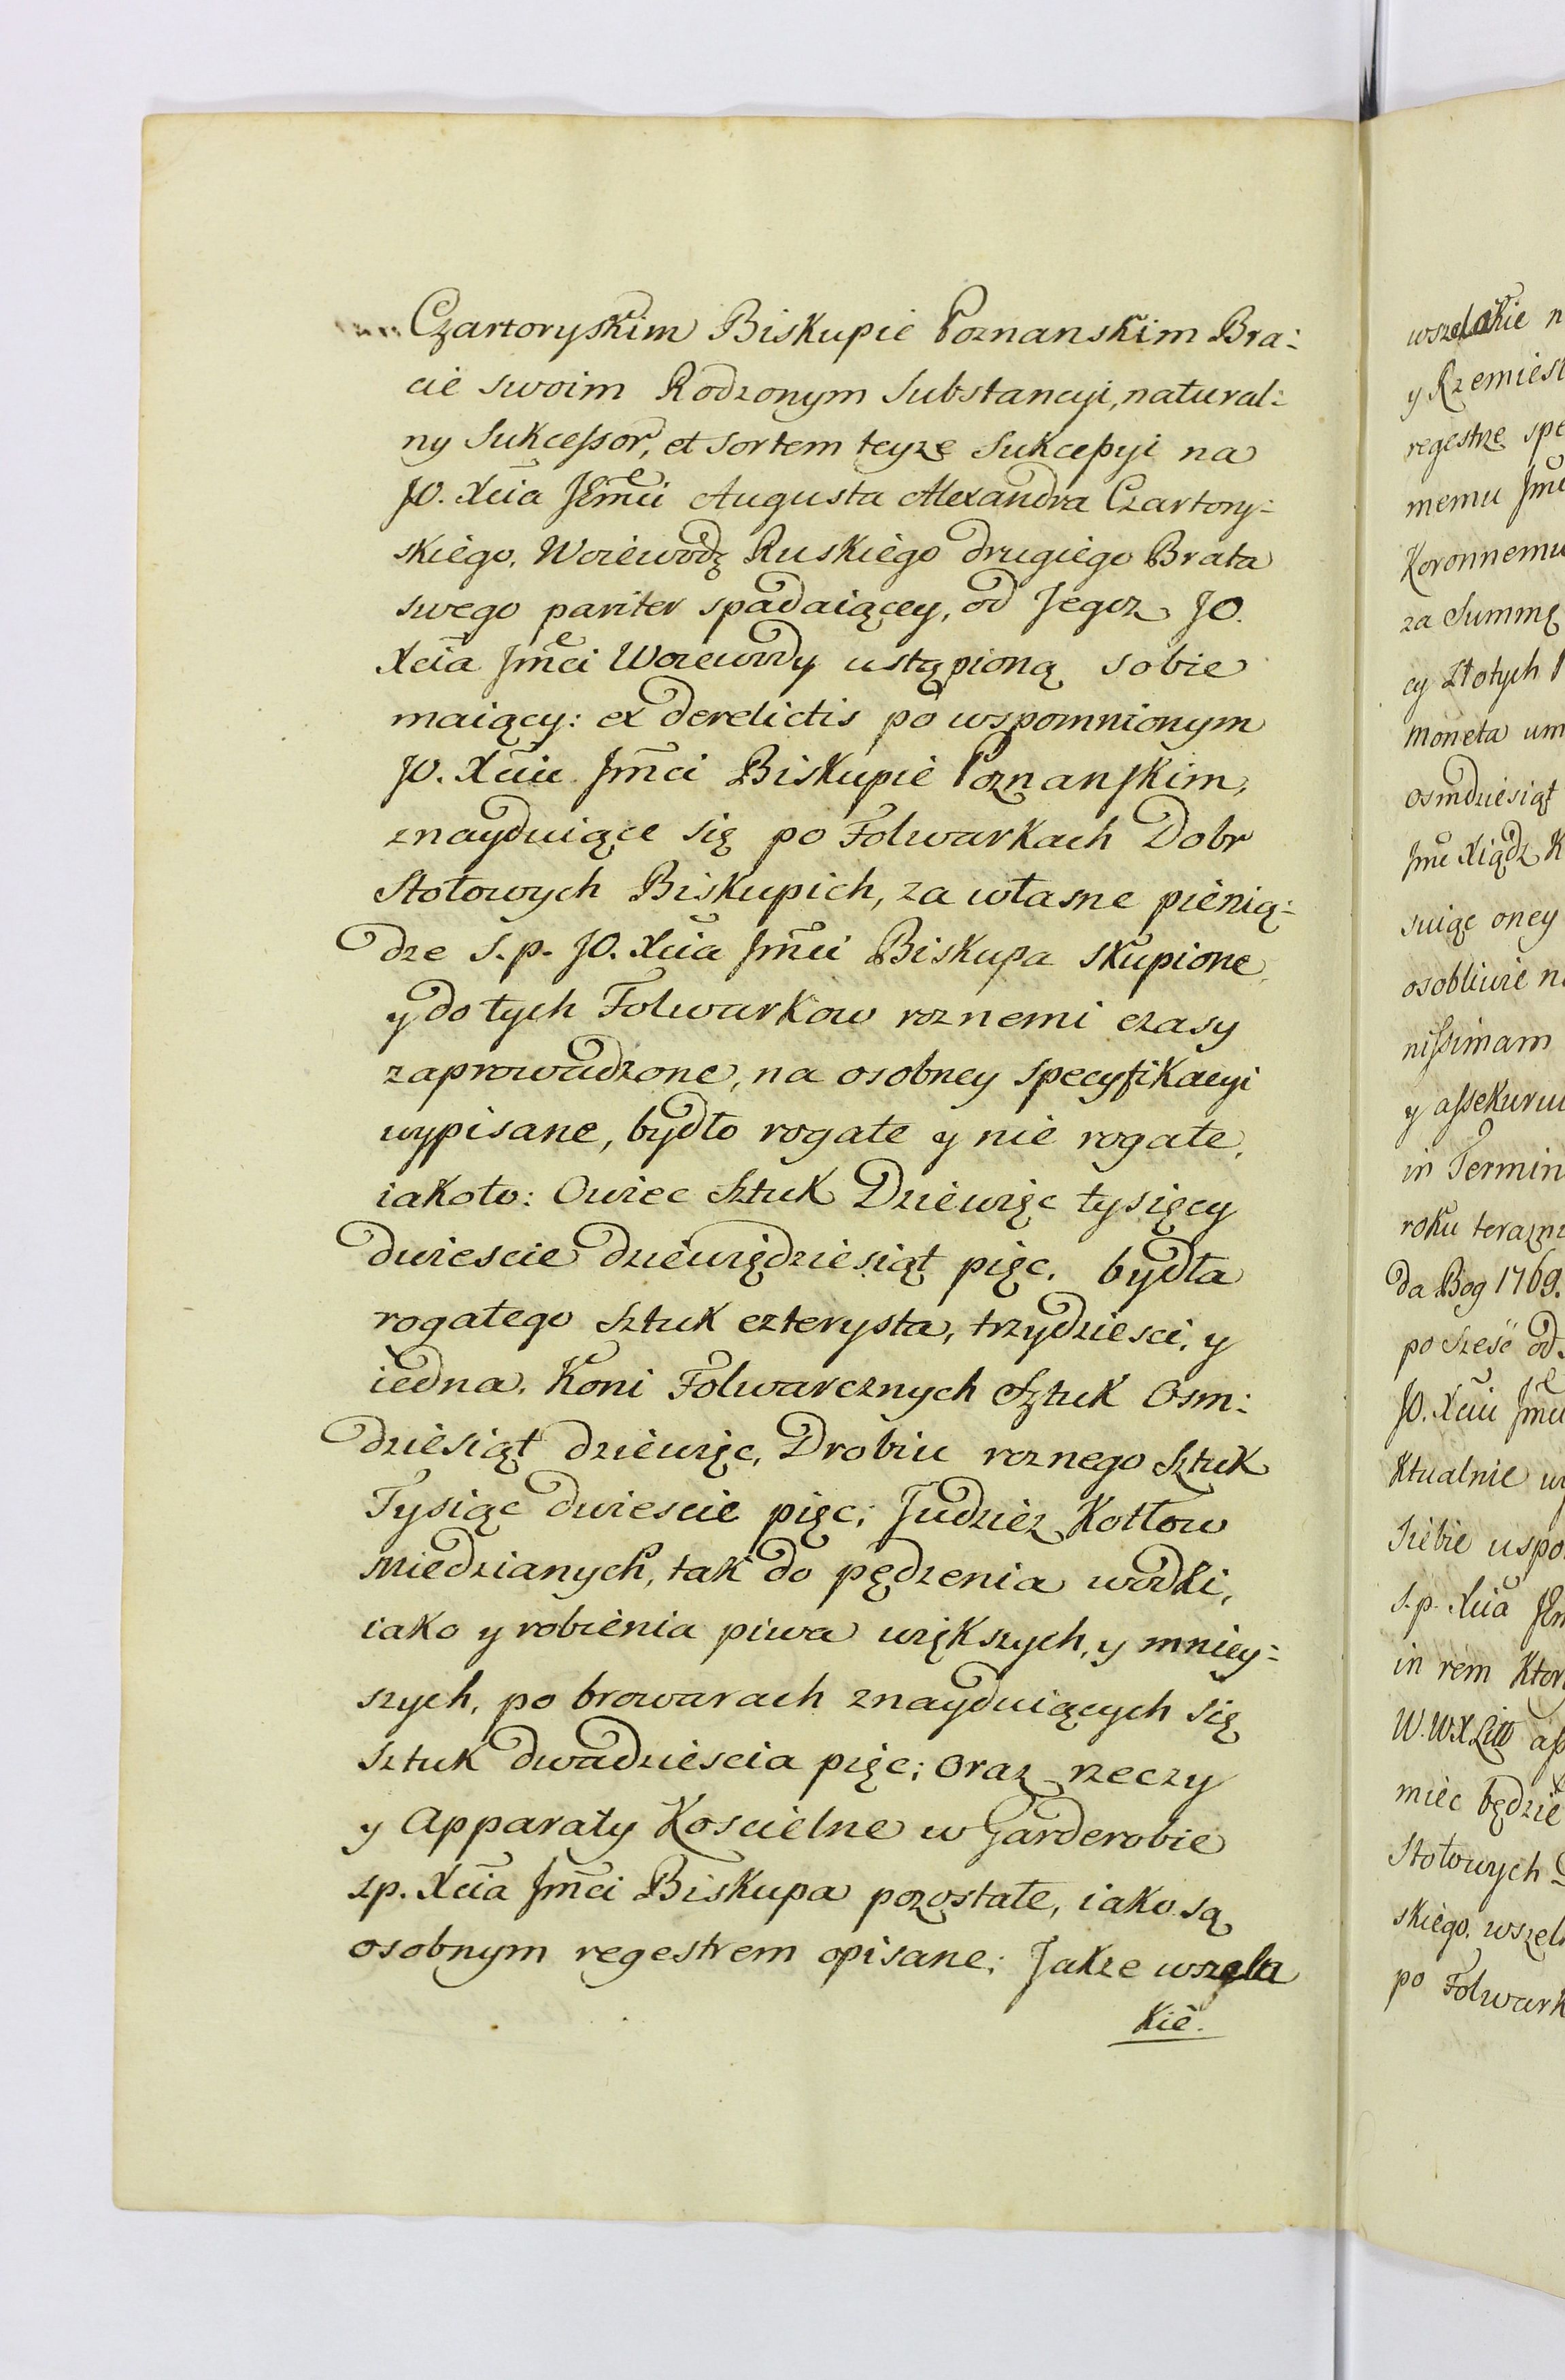 Czartoryskim Biskupie Poznanskim Bra:
cie swoim Rodzonym Substancyi, natural:
ny Sukcessor, et Sortem teyze Sukcessyi na
JO. Xcia Jmci Augusta Alexandra Czartory:
skiego, Woiewodę Ruskiego drugiego Brata
swego pariter spadaiącey, od Jegoz JO.
Xcia Jmci Woiewody ustąpioną sobie
maiący: ex derelictis po wspomnionym
JO. Xciu Jmci Biskupie Poznanskim,
znayduiące się po Folwarkach Dobr
Stołowych Biskupich, za własne pienią:
dze S.p. JO. Xcia Jmci Biskupa skupione,
y do tych Folwarkow roznemi czasy
zaprowadzone, na osobney specyfikacyi
wypisane, bydło rogate y nie rogate,
iakoto: Owiec Sztuk Dziewięc tysięcy
dwiescie dziewiędziesiąt pięc. bydła
rogatego Sztuk czterysta, trzydziesci, y
iedna. Koni Folwarcznych Sztuk Osm:
dziesiąt dziewięc, Drobiu roznego Sztuk
Tysiąc dwiescie pięc; Judziez Kotłow
Miedzianych, tak do pędzenia wodki,
iako y robienia piwa większych, y mniey:
szych, po browarach znayduiących się
Sztuk dwadziescia pięc; oraz rzeczy
y Apparaty Koscielne w Garderobie
sp. Xcia Jmci Biskupa pozostałe, iako są
osobnym regestrem opisane; Jakze wszela
kie.
wszelakie n
y Rzemiesl
regestrze spe
memu Jmc
Koronnemu
za Summę
cy Złotych P
moneta um
osmdziesiąt
Jmc Xiądz K
suiąc oney
osobliwie n
nissimam
y assekuruie
in Termin
roku terazn
da Bog 1769.
po Szesc od
JO. Xciu Jmci
ktualnie wy
Siebie uspo
S.p. Xcia Jm
in rem ktor
W.WXLitt ass
miec będzie
Stołowych
skiego, wszel
po Folwark